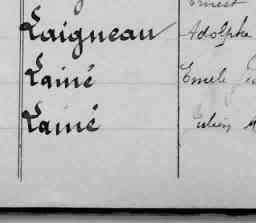 Ernest
Laigneau Adolphe
Lainé Emile
Lainé Julien